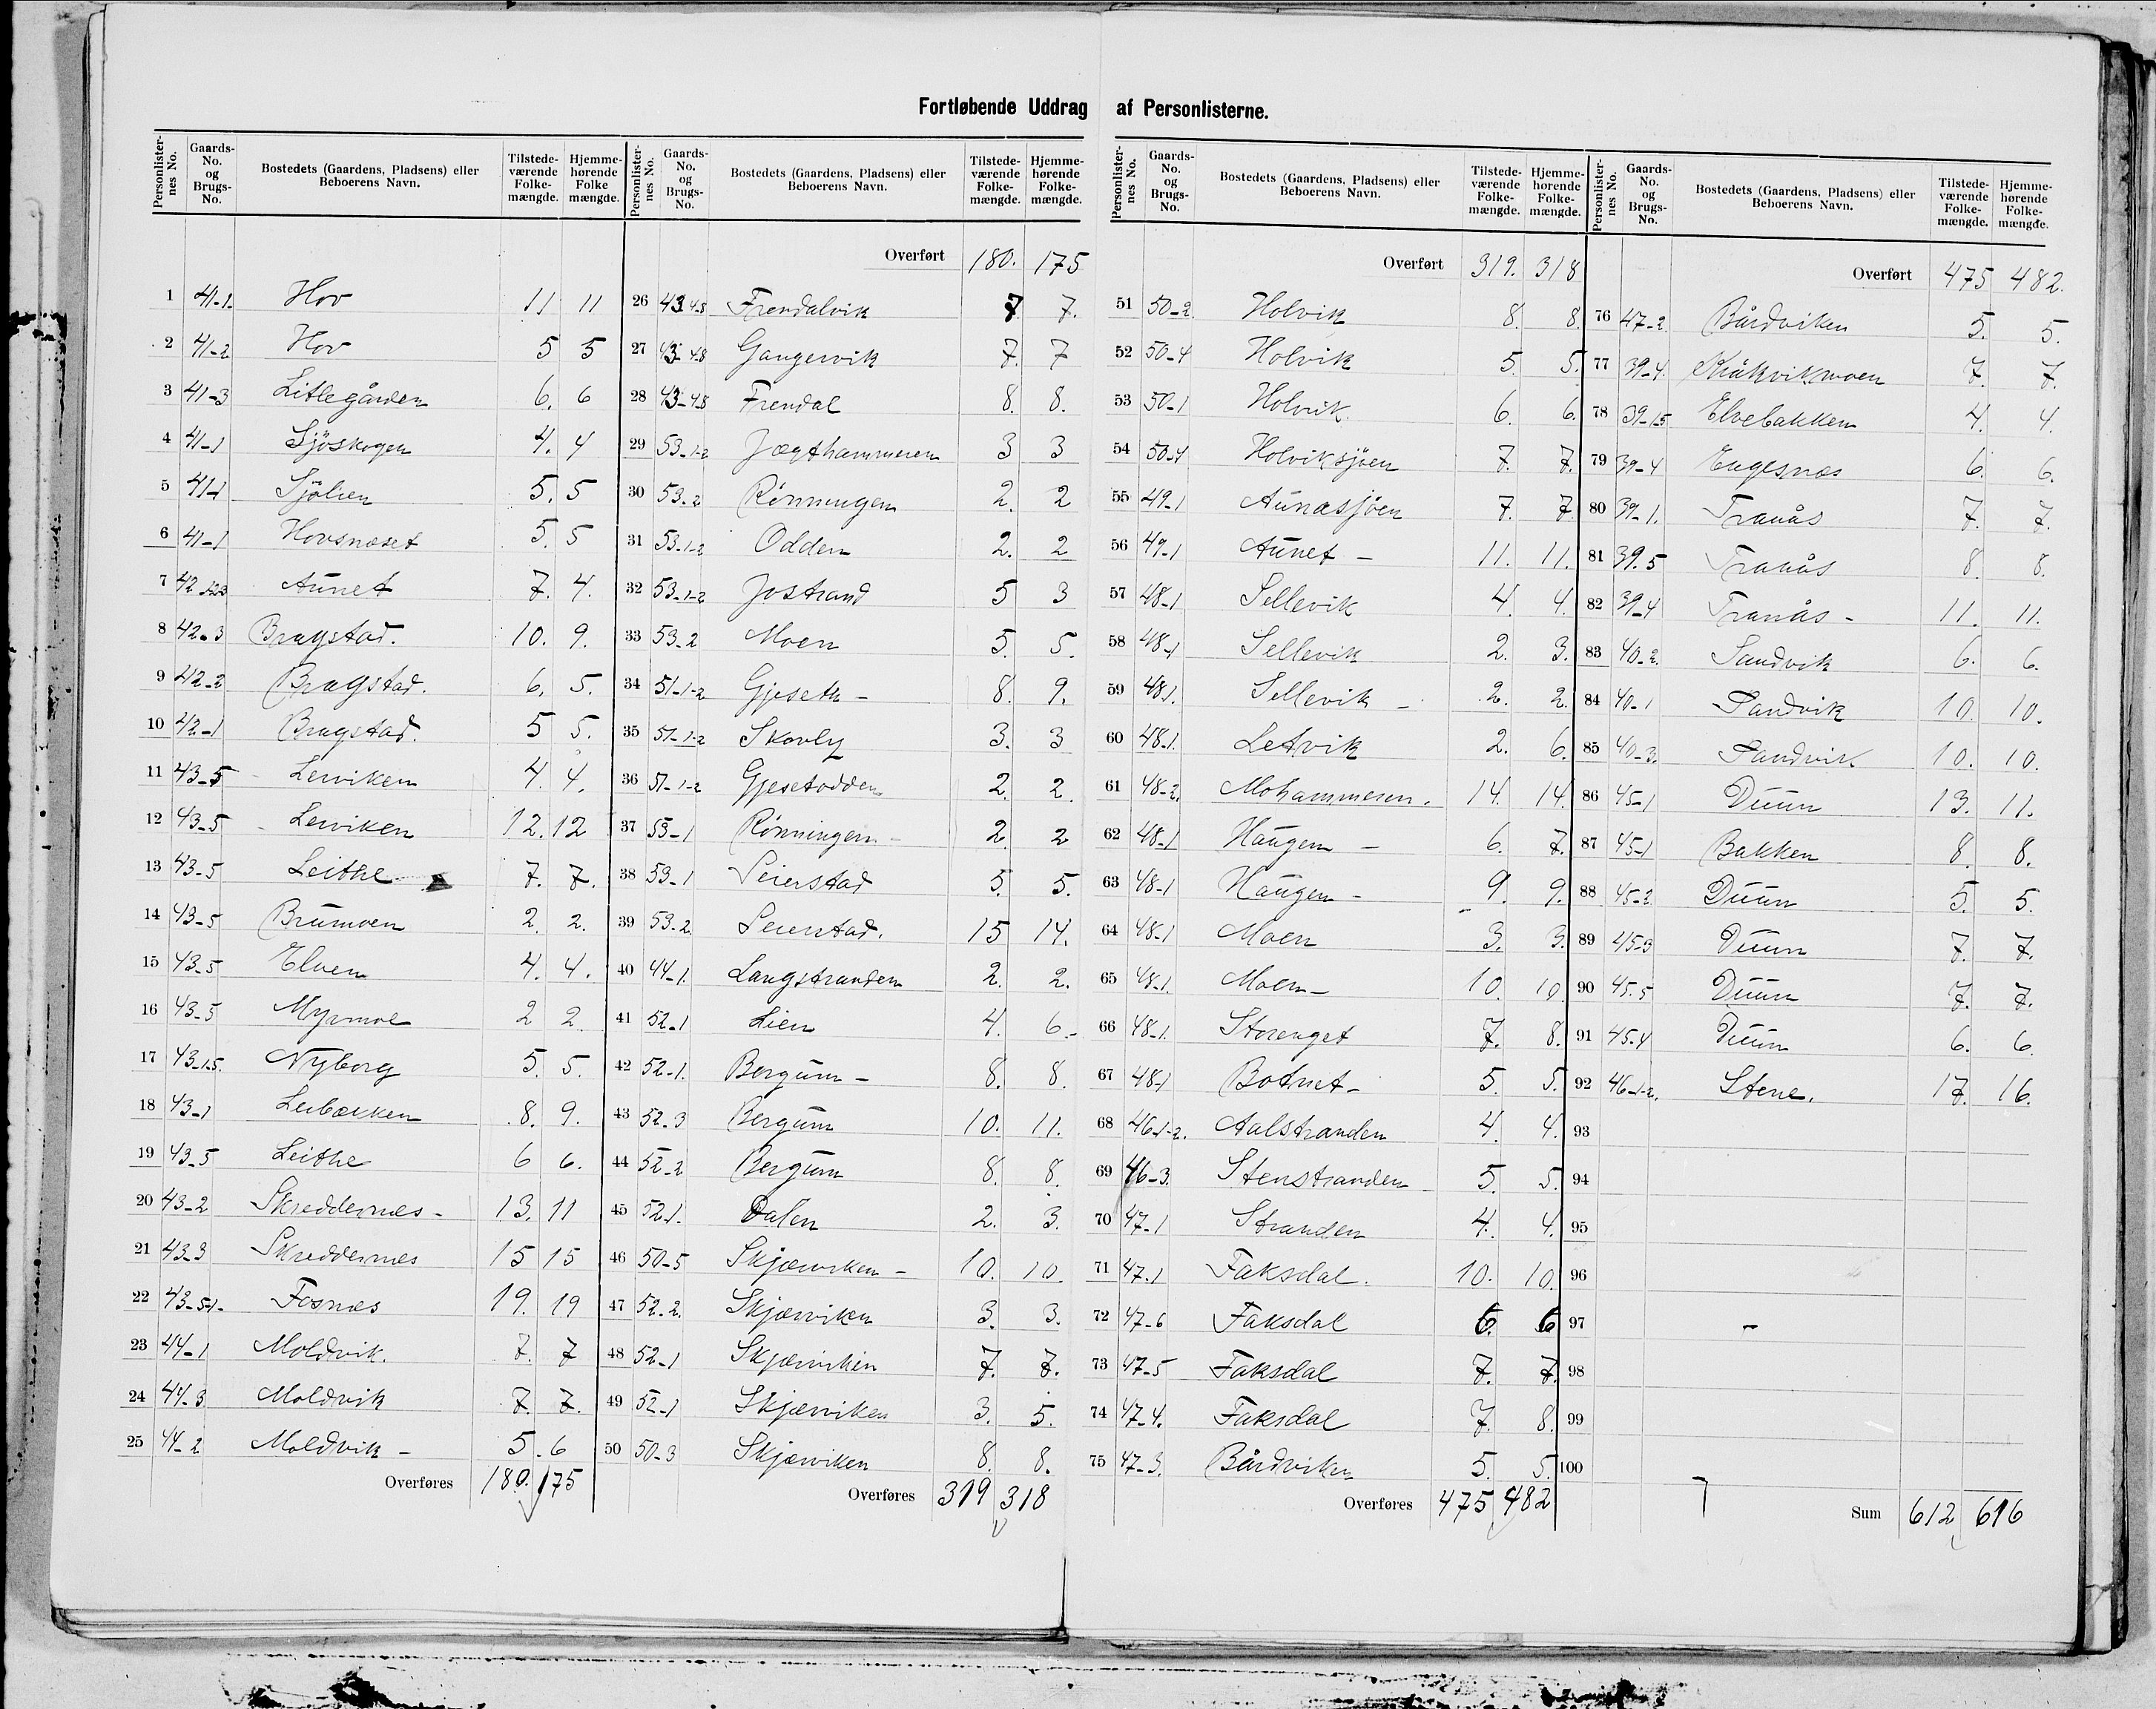 Fortløbende Uddrag af Personlisterne.
Personlister-nes No. Gaards-No. og Brugs-No. Bostedets (Gaardens, Pladsens) eller Beboerens Navn. Tilstede-værende Folke-mængde. Hjemme-hørende Folke mængde.
1 41-1. Hov 11 11
2 41-2 Hov 5 5
3 41-3 Litlegården 6. 6
4 41-1 Sjöskogen 4. 4
5 41-1 Sjölien 5. 5
6 41-1 Hovsnæset 5. 5
7 42 Aunet 7. 4.
8 42-3 Bragstad. 10. 9.
9 42-2 Bragstad. 6. 5.
10 42-1 Bragstad. 5 5.
11 43-5 Lerviken 4. 4.
12 43-5 Lerviken 12. 12
13 43-5 Leithe 7. 7.
14 43-5 Brumoen 2. 2.
15 43-5 Elven 4. 4.
16 43-5 Myrmoe 2 2.
17 43-1.5. Nyborg 5. 5.
18 43-1 Leibækken 8. 9.
19 43-5 Leithe 6 6.
20 43-2 Skreddernes - 13. 11
21 43-3 Skreddernes 15 15
22 43-5-1. Fosnæs 19. 19
23 44-1 Moldvik. 7. 7
24 44-3 Moldvik 7. 7.
25 44-2 Moldvik - 5. 6
Overføres 180. 175
Personlister-nes No. Gaards-No. og Brugs-No. Bostedets (Gaardens, Pladsens) eller Beboerens Navn. Tilstede-værende Folke-mængde. Hjemme-hørende Folke-mængde.
Overført 180. 175
26 43 4.8 Frendalvik 7 7.
27 43-4.8 Gangervik 7. 7
28 43-4.8 Frendal 8. 8.
29 53-1-2 Jægthammeren 3 3
30 53-2 Rönningen 2. 2
31 53-1-2 Odden 2. 2
32 53-1-2 Jostrand 5 3
33 53-2 Moen 5. 5.
34 51-1-2 Gjeseth - 8. 9.
35 51-1-2 Skovly 3. 3
36 51-1-2 Gjesetodden 2. 2.
37 53-1 Rönningen - 2. 2
38 53-1 Seierstad 5. 5.
39 53-2. Seierstad. 15 14.
40 44-1. Langstranden 2. 2.
41 52-1 Lien 4. 6.
42 52-1. Bergum - 8. 8.
43 52-3 Bergum 10. 11.
44 52-2 Bergum 8. 8.
45 52-1. Dalen 2. 3.
46 50-5 Skjærviken - 10. 10.
47 52-2. Skjærviken 3. 3.
48 52-1 Skjærviken 7. 7.
49 52-1 Skjærviken 3. 5.
50 50-3 Skjærviken 8. 8.
Overføres 319 318
Personlister-nes No. Gaards-No. og Brugs-No. Bostedets (Gaardens, Pladsens) eller Beboerens Navn. Tilstede-værende Folke-mængde. Hjemme-hørende Folke-mængde.
Overført 319. 318
51 50-2. Holvik 8. 8.
52 50-4 Holvik 5. 5.
53 50-1 Holvik. 6. 6.
54 50-4 Holviksjöen 7. 7.
55 49-1 Aunasjöen 7. 7
56 49-1 Aunet - 11. 11.
57 48-1 Sellevik 4. 4.
58 48-1 Sellevik 2. 3.
59 48-1. Sellevik - 2. 2.
60 48-1. Letvik 2. 6.
61 48-2. Mohammeren. 14. 14.
62 48-1 Haugen - 6. 7.
63 48-1 Haugen - 9. 9.
64 48-1 Moen 3. 3.
65 48-1. Moen - 10. 10
66 48-1. Storenget 7. 8.
67 48-1 Botnet - 5. 5.
68 46-1-2. Aalstranden 4. 4.
69 46-3. Stenstranden 5. 5.
70 47-1 Stranden 4. 4.
71 47-1 Faksdal. 10. 10.
72 47-6 Faksdal 6. 6
73 47-5 Faksdal 7. 7.
74 47-4. Faksdal 7. 8.
75 47-3. Bårdviken 5. 5.
Overføres 475 482
Personlister-nes No. Gaards-No. og Brugs-No. Bostedets (Gaardens, Pladsens) eller Beboerens Navn. Tilstede-værende Folke-mængde. Hjemme-hørende Folke-mængde.
Overført 475 482.
76 47-2. Bårdviken 5. 5.
77 39-4. Kråkvikmoen 7. 7.
78 39-1.5 Elvebakken 4. 4.
79 39-4 Engesnæs 6. 6.
80 39-1. Tranås 7. 7.
81 39.5 Tranås 8. 8.
82 39-4 Tranås - 11. 11.
83 40-2. Sandvik 6. 6.
84 40-1 Sandvik 10. 10.
85 40-3. Sandvik 10. 10.
86 45-1 Duun 13. 11.
87 45-1 Bakken 8. 8.
88 45-2. Duun 5. 5.
89 45-3 Duun 7. 7.
90 45.5 Duun 7. 7.
91 45.4 Duun 6. 6
92 46-1-2. Stene. 17. 16.
93
94
95
96
97 -
98
99
100
Sum 612 616